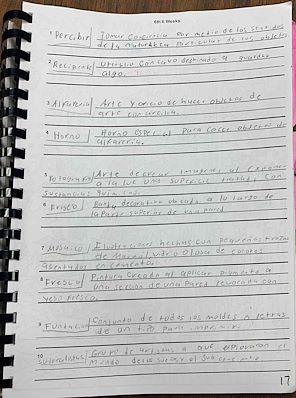 1 Percibir Tomar Conciencia por medio de los sentidos
de la naturaleza particular de los objetos
2 Recipiente Utensilio Concavo destinado a guardar
algo.
3 Alfarería Arte y oficio de hacer objetos de
arte con arcilla.
4 Horno Horno especial para cocer objetos de
alfareria.
5 Fotografía Arte de crear imagenes al exponer
a la luz una superficie tratada con
sustancias quimicas.
6 Friso Banda decorativa ubicada a lo largo de
la parte superior de una pared
7 Mosaico Ilustraciones hechas con pequeños trozos
de Marmol, vidrio o losa de colores
en cemento.
8 Fresco Pintura Creada al aplicar pigmento a
una sección de una pared revocada con
yeso fresco.
9 Fundición Conjunto de todos los moldes o letras
de un tipo para imprimir.
10 Surrealistas Grupo de artistas que exploraron el
Mundo de los sueños y el subconsciente.
17